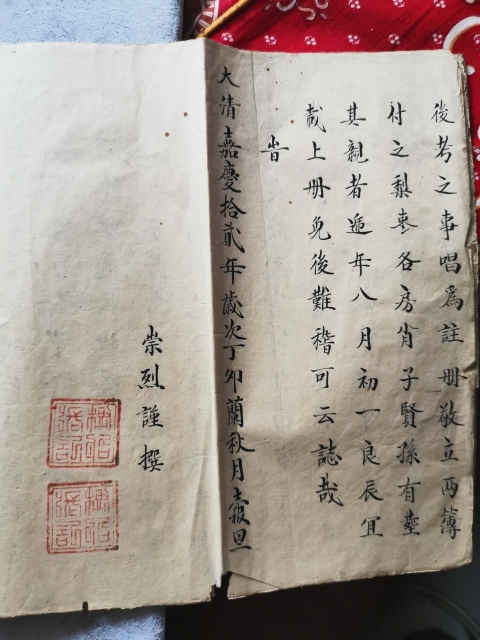 後考之事唱爲註冊敬立两簿
付之梨枣各房肖子賢孫有
其親者逓年八月初一良辰宜
載上冊免後難稽可云誌哉
旹
大清嘉慶拾貳年歲次丁卯蘭秋月穀旦
崇烈謹撰